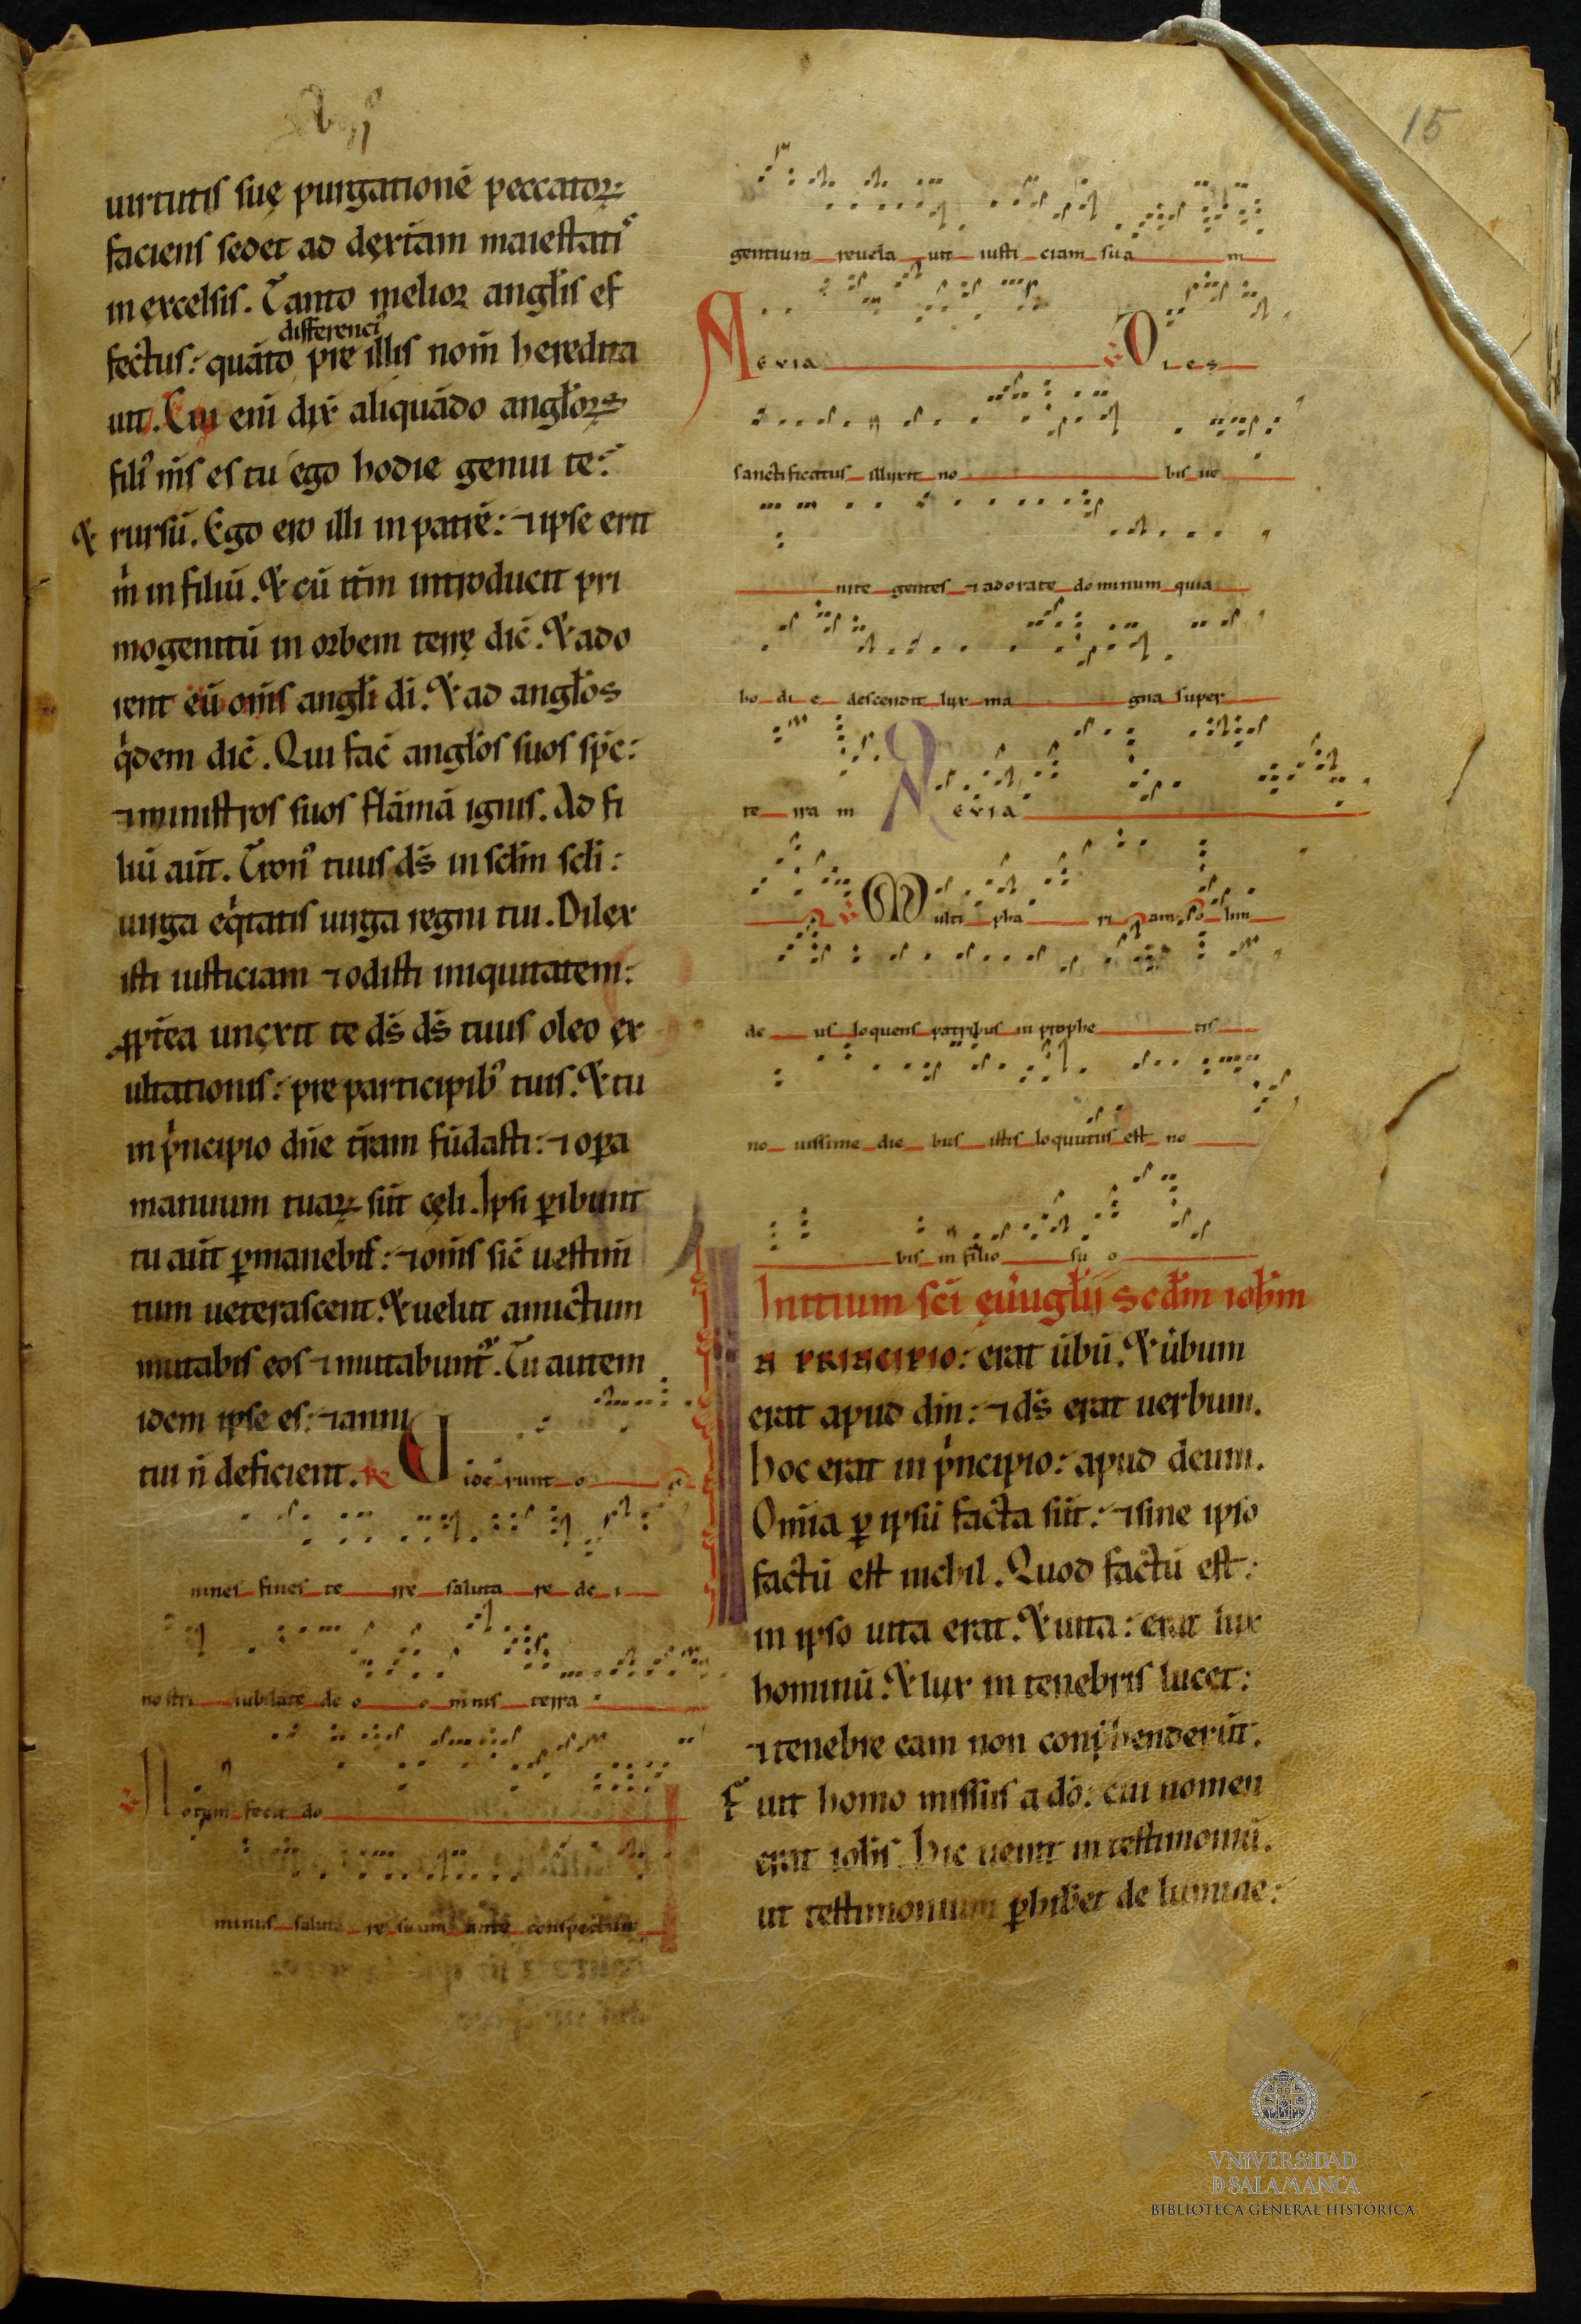 15
uirtutis suę purgationē peccatoꝝ
faciens sedet ad dexteram maiestatiꝰ
in excelsis. Tanto melior angl̄is ef
differenciꝰ
fectus: quāto pre illis nom̄ heredita
uit. Cui eni̅ dix̄ aliquādo angl̄oꝝ
filiꝰ m̄s es tu ego hodie genui te:
& rursū. Ego ero illi in patrē: ⁊ ipse erit
m̄ in filiū. & cū itm̄ introducit pri
mogenitū in orbem terrę dic̄. & ado
rent eū om̄s angl̄i di̅. & ad angl̄os
q̇dem dic̄. Qui fac̄ angl̄os suos sp̄c:
⁊ ministros suos flāmā ignis. Ad fi
liū aūt. Tronꝰ tuus d̄s in scl̄m scl̄i:
uirga eq̇tatis uirga regni tui. Dilex
isti iusticiam ⁊ odisti iniquitatem:
ꝓpt̄ea unxit te d̄s d̄s tuus oleo ex
ultationis: pre participibꝰ tuis. & tu
in pͥncipio dn̄e t̄ram fūdasti: ⁊ oꝑa
manuum tuaꝝ sūt cęli. Ipsi ꝑibunt
tu aūt ꝑmanebis: ⁊ om̄s sic̄ uestim̄
tum ueterascent. & uelut amictum
mutabis eos ⁊ mutabuntᷣ. Tu autem
idem ipse es: ⁊ anni
tui n̄ deficient. R Uiderunt o
mnes fines te rre saluta re de i
nostri iubilate de o o mnis terra
Notum fecit do
minus saluta re suum ante conspectum
gentium reuela uit iusti ciam sua m
Aeuia Dies
sanctificatus illuxit no bis ue
nite gentes ⁊ adorate dominum quia
ho di e descendit lux ma gna super
te rra m Aeuia
Multi pha ri am olim
de us loquens patribus in prophe tis
no uissime die bus istis loquutus est no
bis in filio su o
Initium sc̄i eu̅ugl̄ij scdm̄ ioh̄m
IN PRINCIPIO: erat ūbū. & ūbum
erat apud dm̄: ⁊ d̄s erat uerbum.
hoc erat in pͥncipio: apud deum.
Om̄ia ꝑ ipsū facta sūt: ⁊ sine ipso
factū est nichil. Quod factū est:
in ipso uita erat. & uita: erat lux
hominū. & lux in tenebris lucet:
⁊ tenebre eam non conp̄henderūt.
Fuit homo missus a dō: cui nomen
erat ioh̄s. Hic uenit in testimoniū.
ut testimonium ꝑhiberet de lumine:
VNIVERSIDAD
D SALAMANCA
BIBLIOTECA GENERAL HISTÓRICA